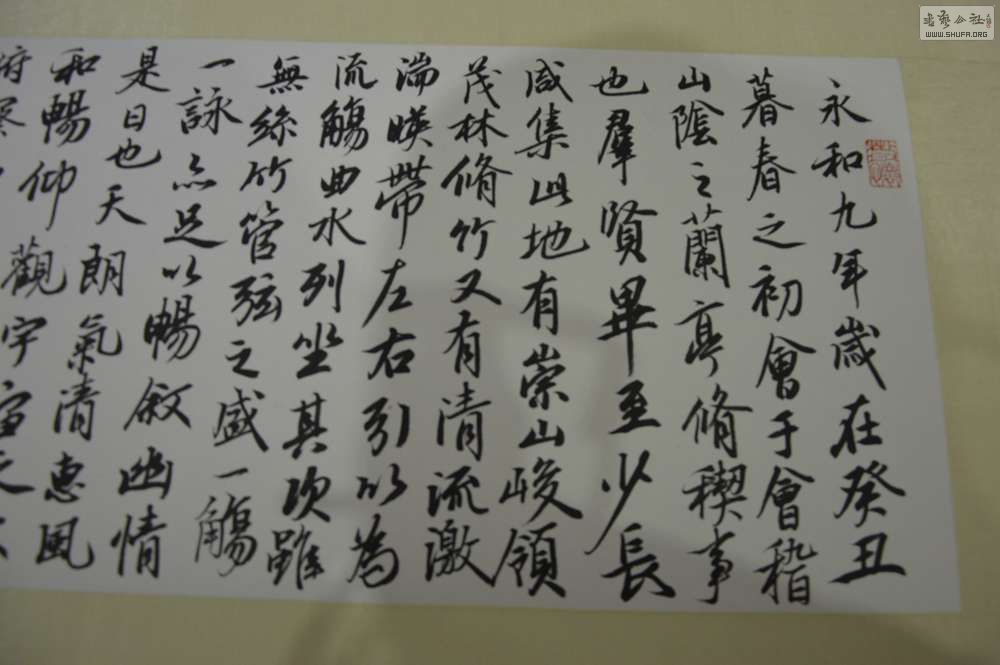 永和九年歲在癸丑
暮春之初會于會稽
山陰之蘭亭脩稧事
也羣賢畢至少長
咸集此地有崇山峻領
茂林脩竹又有清流激
湍暎帶左右引以為
流觴曲水列坐其次雖
無絲竹管弦之盛一觴
一詠亦足以暢敘幽情
是日也天朗氣清惠風
和暢仰觀宇宙之
俯察
書藝公社
WWW.SHUFA.ORG